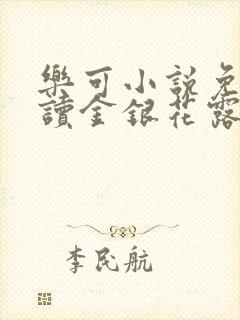 樂可小說免
讀金銀花露
李民航